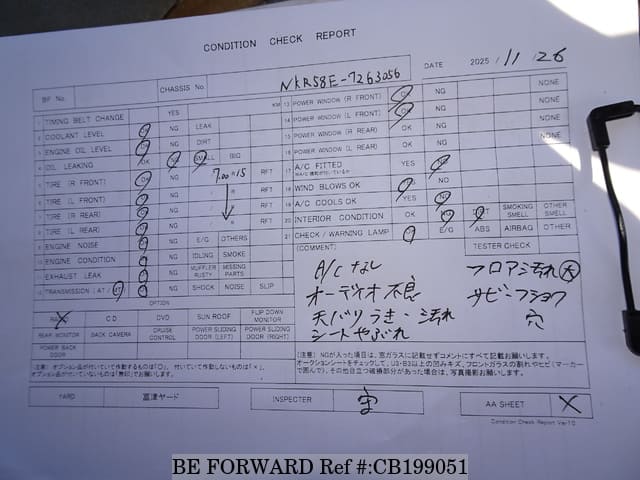 CONDITION CHECK REPORT
BF No. CHASSIS No. NKR58E-7263056 DATE 2025 / 11 / 26
1 TIMING BELT CHANGE YES KM
2 COOLANT LEVEL OK NG LEAK
3 ENGINE OIL LEVEL OK NG DIRT
4 OIL LEAKING OK NG SMALL BIG
5 TIRE (R FRONT) OK NG 7.00 R15 RFT
6 TIRE (L FRONT) NG RFT
7 TIRE (R REAR) NG RFT
8 TIRE (L REAR) NG RFT
9 ENGINE NOISE NG E/G OTHERS
10 ENGINE CONDITION NG IDLING SMOKE
11 EXHAUST LEAK NG MUFFLER RUSTY MISSING PARTS
12 TRANSMISSION (AT / MT) NG SHOCK NOISE SLIP
13 POWER WINDOW (R FRONT) OK NG NONE
14 POWER WINDOW (L FRONT) OK NG NONE
15 POWER WINDOW (R REAR) OK NG NONE
16 POWER WINDOW (L REAR) OK NG NONE
17 A/C FITTED YES NO
18 WIND BLOWS OK YES NO
19 A/C COOLS OK YES NO
20 INTERIOR CONDITION OK NG DIRT SMOKING SMELL OTHER SMELL
21 CHECK / WARNING LAMP E/G ABS AIRBAG OTHER
(COMMENT) TESTER CHECK
A/C なし
オーディオ不良
天バリうき・汚れ
シートやぶれ
フロア汚れ 大
サビ・フショク
穴
OPTION
RADIO CD DVD SUN ROOF FLIP DOWN MONITOR
REAR MONITOR BACK CAMERA CRUISE CONTROL POWER SLIDING DOOR (LEFT) POWER SLIDING DOOR (RIGHT)
POWER BACK DOOR
(注意) オプション品が付いていて作動するものは「○」、付いていて作動しないものは「×」、
オプション品が付いていないものは「無印」でお願いします。
(注意) NGが入った項目は、窓ガラスに記載せずコメントにすべて記載お願いします。
オークションシートをチェックして、U3・B3以上の凹みキズ、フロントガラスの割れやヒビ(マーカー
で囲んで)、その他目立つ破損部分があった場合は、写真撮影お願いします。
YARD 富津ヤード INSPECTER 宇 AA SHEET ×
Condition Check Report Ver.10
BE FORWARD Ref #:CB199051